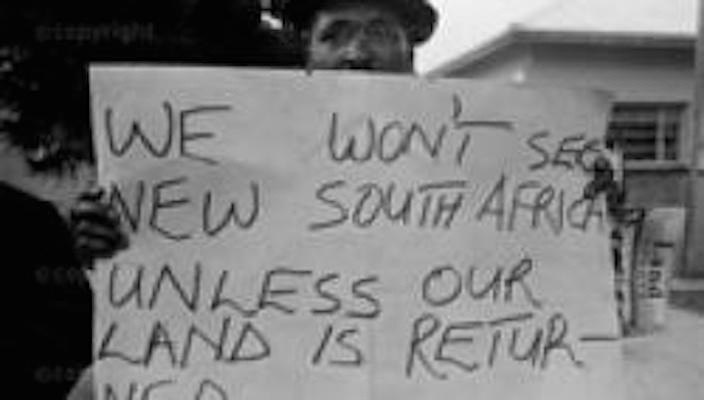 ©copyright
WE WON'T SEE
NEW SOUTH AFRICA
UNLESS OUR
LAND IS RETUR-
NED